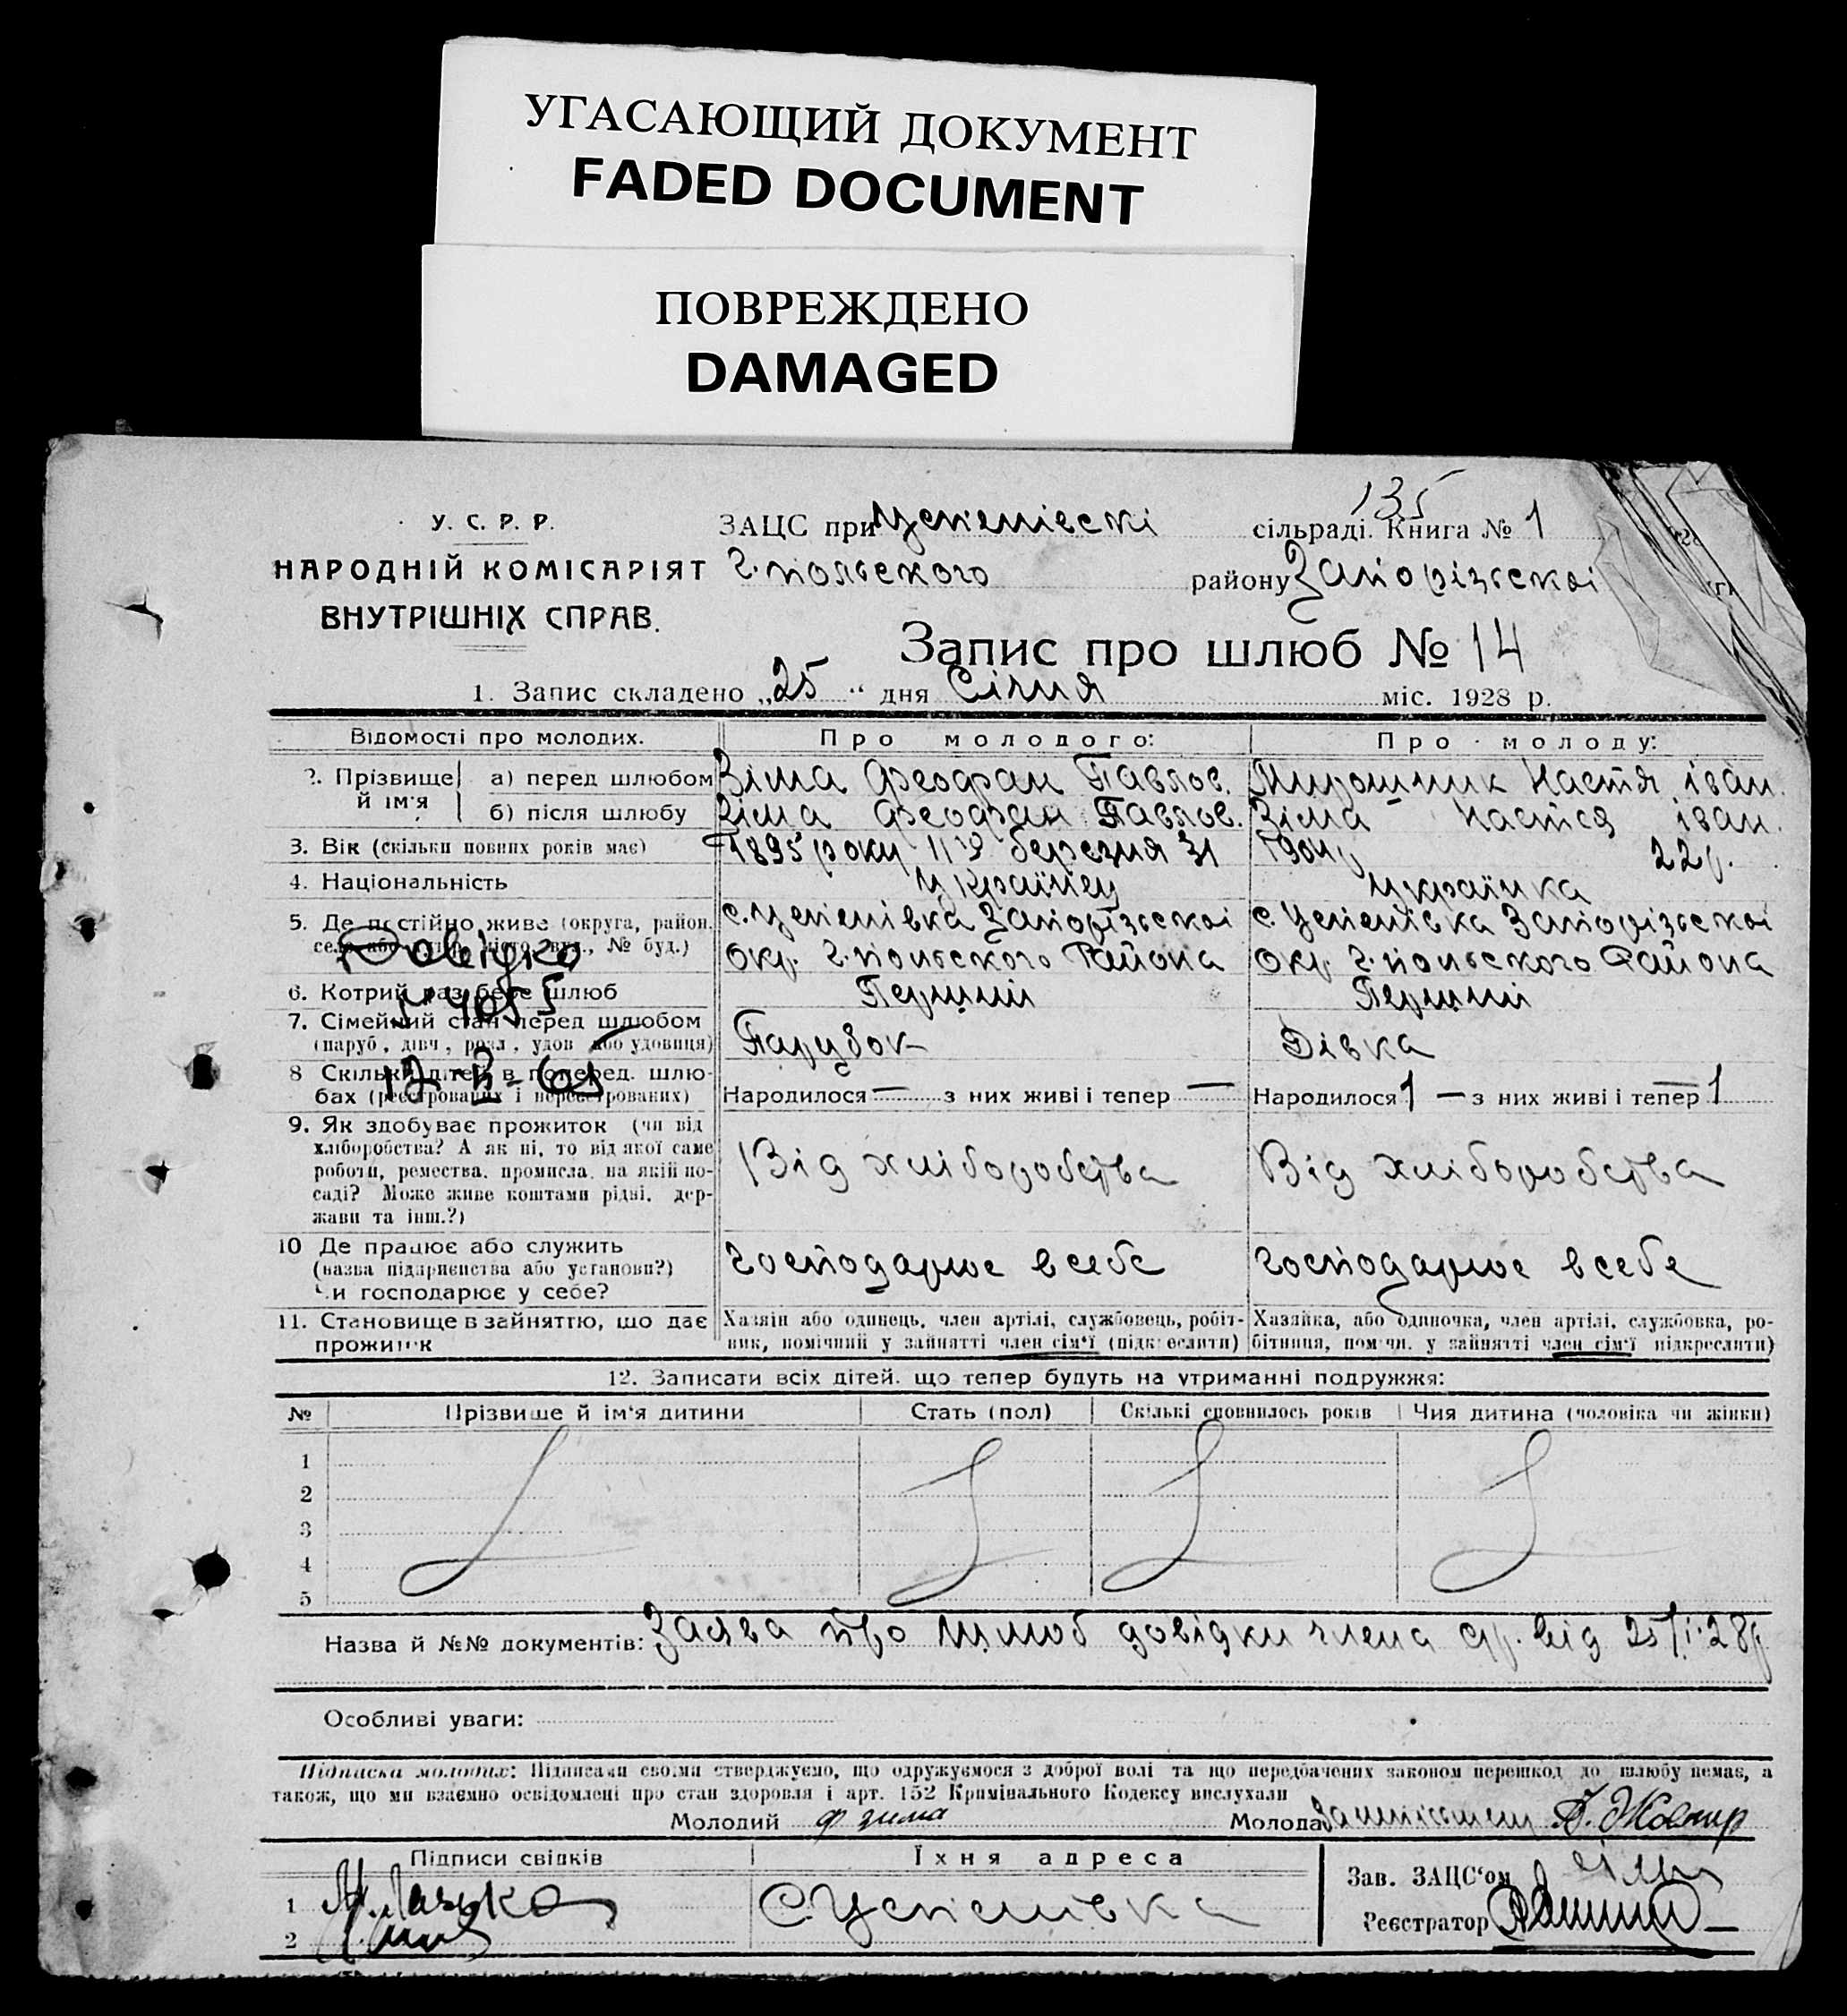 УГАСАЮЩИЙ ДОКУМЕНТ
FADED DOCUMENT
ПОВРЕЖДЕНО
DAMAGED
135
У. С. Р. Р.
НАРОДНІЙ КОМІСАРІЯТ
ВНУТРІШНІХ СПРАВ.
ЗАЦС при сільраді. Книга № 1
г.польского району Запорізської
Запис про шлюб № 14
1. Запис складено „25“ дня Січня міс. 1928 р.
Відомості про молодих. Про молодого: Про молоду:
2. Прізвище й ім'я
а) перед шлюбом Зіма Феофан Павлов. Мирошник Настя іван.
б) після шлюбу Зіма Феофан Павлов. Зіма Настя іван.
3. Вік (скільки повних років має) 1895 року березня 31 22р.
4. Національність Українец українка
5. Де постійно живе (округа, район, село або хутір, місто, вул., № буд.)
с. Запорізської с. Запорізської
окр. г.польского Района окр. г.польского Района
Довідка
№ 4055
6. Котрий раз бере шлюб Перший Перший
7. Сімейний стан перед шлюбом Парубок Дівка
(паруб., дівч., розл., удов. або удовиця)
8 Скільки дітей в поперед. шлюбах (реєстрованих і нереєстрованих)
Народилося — з них живі і тепер — Народилося 1 — з них живі і тепер 1
9. Як здобуває прожиток (чи від
хліборобства? А як ні, то від якої саме
роботи, ремества, промисла, на якій посаді? Може живе коштами рідні, держави та інш.?)
Від хліборобства Від хліборобства
10 Де працює або служить
(назва підприємства або установи?)
Чи господарює у себе?
господарює в себе господарює в себе
11. Становище в зайняттю, що дає прожиток
Хазяїн або одинець, член артілі, службовець, робітник, помічний у зайнятті член сім'ї (підкреслити)
Хазяйка, або одиночка, член артілі, службовка, робітниця, помічн. у зайнятті член сім'ї підкреслити)
12. Записати всіх дітей, що тепер будуть на утриманні подружжя:
№ Прізвище й ім'я дитини Стать (пол) Скількі сповнилось років Чия дитина (чоловіка чи жінки)
1
2
3
4
5
Назва й №№ документів: Заява про шлюб довідки члена від 25/I-28р
Особливі уваги:
Підписка молодих: Підписами своїми стверджуємо, що одружуємося з доброї волі та що передбачених законом перешкод до шлюбу немає, а
також, що ми взаємно освідомлені про стан здоровля і арт. 152 Кримінального Кодексу вислухали
Молодий Ф зима Молода
Підписи свідків Їхня адреса Зав. ЗАЦС'ом
1
2
Реєстратор